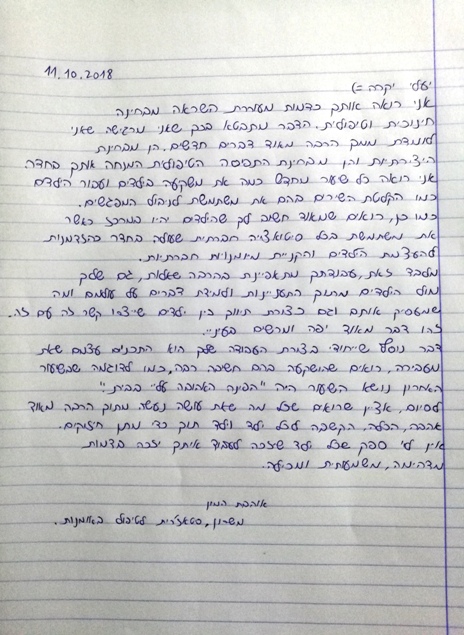 11.10.2018
יעלי יקרה =)
אני רואה אותך כדמות מעוררת השראה מבחינה
חינוכית וטיפולית. הדבר מתבטא בכך שאני מרגישה שאני
לומדת ממך הרבה מאוד דברים חדשים. הן מבחינת
היצירתיות והן מבחינת התפיסה הטיפולית המנחה אותך בחדר.
אני רואה כל שיעור מחדש כמה את משקיעה בילדים ועבור הילדים
כמו הקלטת השירים בהם את משתמשת לניהול המפגשים.
כמו כן, רואים שמאוד חשוב לך שהילדים יהיו במרכז כאשר
את משתמשת בכל סיטואציה חברתית שעולה בחדר כהזדמנות
להעצמת הילדים והקניית מיומנויות חברתיות.
מלבד זאת, עבודתך מתאפיינת בהרבה שאלות, גם שלך
מול הילדים מתוך התעניינות ולמידת דברים על עולמם ומה
שמעסיק אותם וגם כצורת תיווך בין ילדים שייצרו קשר זה עם זה.
זהו דבר מאוד יפה ומרשים בעיניי.
דבר נוסף שייחודי בצורת העבודה שלך הוא התכנים עצמם שאת
מעבירה, רואים שהושקעה בהם חשיבה רבה, כמו לדוגמה שבשיעור
האחרון נושא השיעור היה "הפינה האהובה עליי בבית".
לסיום, אציין שרואים שכל מה שאת עושה נעשה מתוך הרבה מאוד
אהבה, הכלה, הקשבה לכל ילד וילד תוך כדי מתן חיזוקים.
אין לי ספק שכל ילד שיזכה לעבוד איתך יזכה בדמות
מדהימה, משמעותית ומכילה.
אוהבת המון
משרון, סטאז'רית לטיפול באומנות.